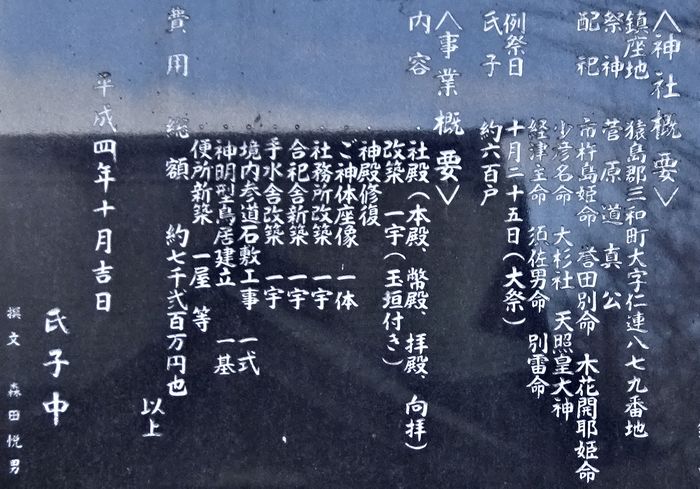 〈神社概要〉
鎮座地　猿島郡三和町大字仁連八七九番地
祭神　菅原道真公
配祀　市杵島姫命　誉田別命　木花開耶姫命
少彦名命　大杉社　天照皇大神
経津主命　須佐男命　別雷命
例祭日　十月二十五日（大祭）
氏子　約六百戸
〈事業概要〉
内容　社殿（本殿、幣殿、拝殿、向拝）
改築　一宇（玉垣付き）
神殿修復
ご神体座像　一体
社務所改築　一宇
合祀舎新築　一宇
手水舎改築　一宇
境内参道石敷工事　一式
神明型鳥居建立　一基
便所新築　一屋　等
費用　総額　約七千弐百万円也
以上
平成四年十月吉日
氏子中
撰文　森田悦男